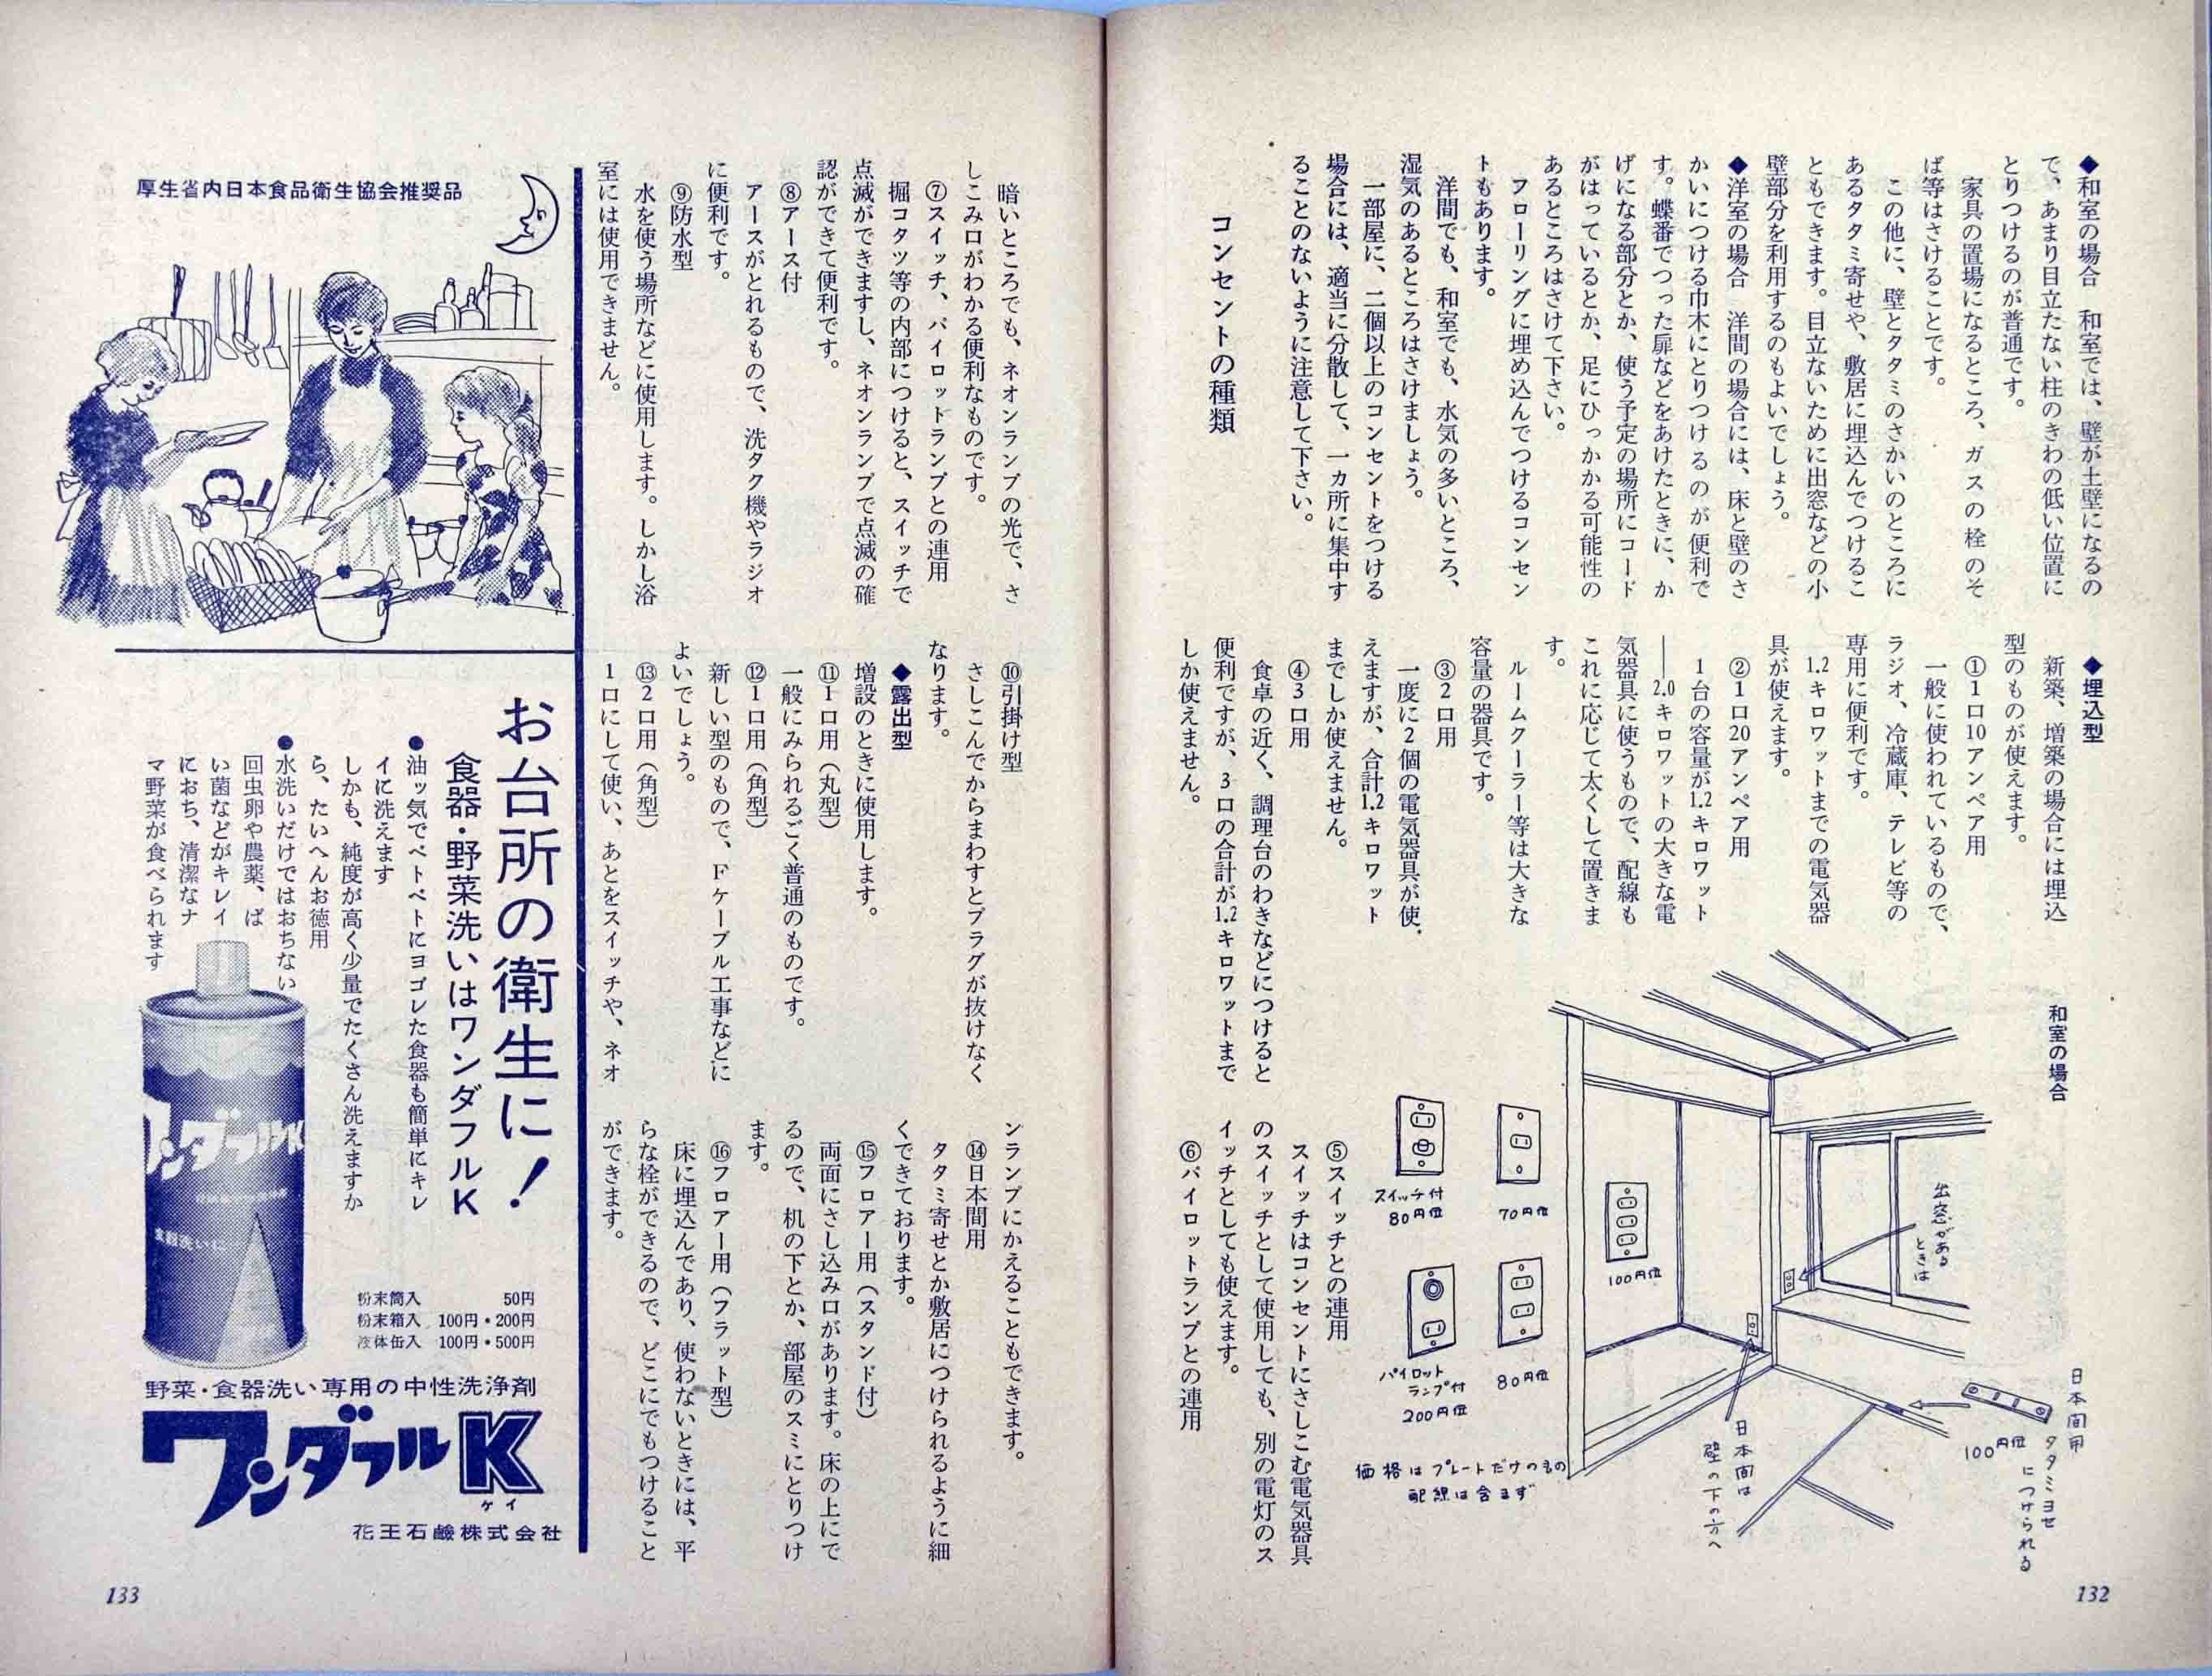 ◆和室の場合　和室では、壁が土壁になるの
で、あまり目立たない柱のきわの低い位置に
とりつけるのが普通です。
家具の置場になるところ、ガスの栓のそ
ば等はさけることです。
この他に、壁とタタミのさかいのところに
あるタタミ寄せや、敷居に埋込んでつけるこ
ともできます。目立ないために出窓などの小
壁部分を利用するのもよいでしょう。
◆洋室の場合　洋間の場合には、床と壁のさ
かいにつける巾木にとりつけるのが便利で
す。蝶番でつった扉などをあけたときに、か
げになる部分とか、使う予定の場所にコード
がはっているとか、足にひっかかる可能性の
あるところはさけて下さい。
フローリングに埋め込んでつけるコンセン
トもあります。
洋間でも、和室でも、水気の多いところ、
湿気のあるところはさけましょう。
一部屋に、二個以上のコンセントをつける
場合には、適当に分散して、一カ所に集中す
ることのないように注意して下さい。
コンセントの種類
◆埋込型
新築、増築の場合には埋込
型のものが使えます。
①1口10アンペア用
一般に使われているもので、
ラジオ、冷蔵庫、テレビ等の
専用に便利です。
1.2キロワットまでの電気器
具が使えます。
②1口20アンペア用
1台の容量が1.2キロワット
―2.0キロワットの大きな電
気器具に使うもので、配線も
これに応じて太くして置きま
す。
ルームクーラー等は大きな
容量の器具です。
③2口用
一度に2個の電気器具が使
えますが、合計1.2キロワット
までしか使えません。
④3口用
食卓の近く、調理台のわきなどにつけると
便利ですが、3口の合計が1.2キロワットまで
しか使えません。
和室の場合
出窓がある
ときは
日本間用
タタミヨセ
につけられる
100円位
日本間は
壁の下の方へ
100円位
70円位
80円位
スイッチ付
80円位
パイロット
ランプ付
200円位
価格はプレートだけのもの
配線は含まず
⑤スイッチとの連用
スイッチはコンセントにさしこむ電気器具
のスイッチとして使用しても、別の電灯のス
イッチとしても使えます。
⑥パイロットランプとの連用
132
暗いところでも、ネオンランプの光で、さ
しこみ口がわかる便利なものです。
⑦スイッチ、パイロットランプとの連用
掘コタツ等の内部につけると、スイッチで
点滅ができますし、ネオンランプで点滅の確
認ができて便利です。
⑧アース付
アースがとれるもので、洗タク機やラジオ
に便利です。
⑨防水型
水を使う場所などに使用します。しかし浴
室には使用できません。
⑩引掛け型
さしこんでからまわすとプラグが抜けなく
なります。
◆露出型
増設のときに使用します。
⑪1口用（丸型）
一般にみられるごく普通のものです。
⑫1口用（角型）
新しい型のもので、Fケーブル工事などに
よいでしょう。
⑬2口用（角型）
1口にして使い、あとをスイッチや、ネオ
ンランプにかえることもできます。
⑭日本間用
タタミ寄せとか敷居につけられるように細
くできております。
⑮フロアー用（スタンド付）
両面にさし込み口があります。床の上にで
るので、机の下とか、部屋のスミにとりつけ
ます。
⑯フロアー用（フラット型）
床に埋込んであり、使わないときには、平
らな栓ができるので、どこにでもつけること
ができます。
厚生省内日本食品衛生協会推奨品
お台所の衛生に！
食器・野菜洗いはワンダフルK
●油ッ気でベトベトにヨゴレた食器も簡単にキレ
イに洗えます
しかも、純度が高く少量でたくさん洗えますか
ら、たいへんお徳用
●水洗いだけではおちない
回虫卵や農薬、ば
い菌などがキレイ
におち、清潔なナ
マ野菜が食べられます
ワンダフルK
粉末筒入　50円
粉末箱入　100円・200円
液体缶入　100円・500円
野菜・食器洗い専用の中性洗浄剤
ワンダフルK
ケイ
花王石鹸株式会社
133